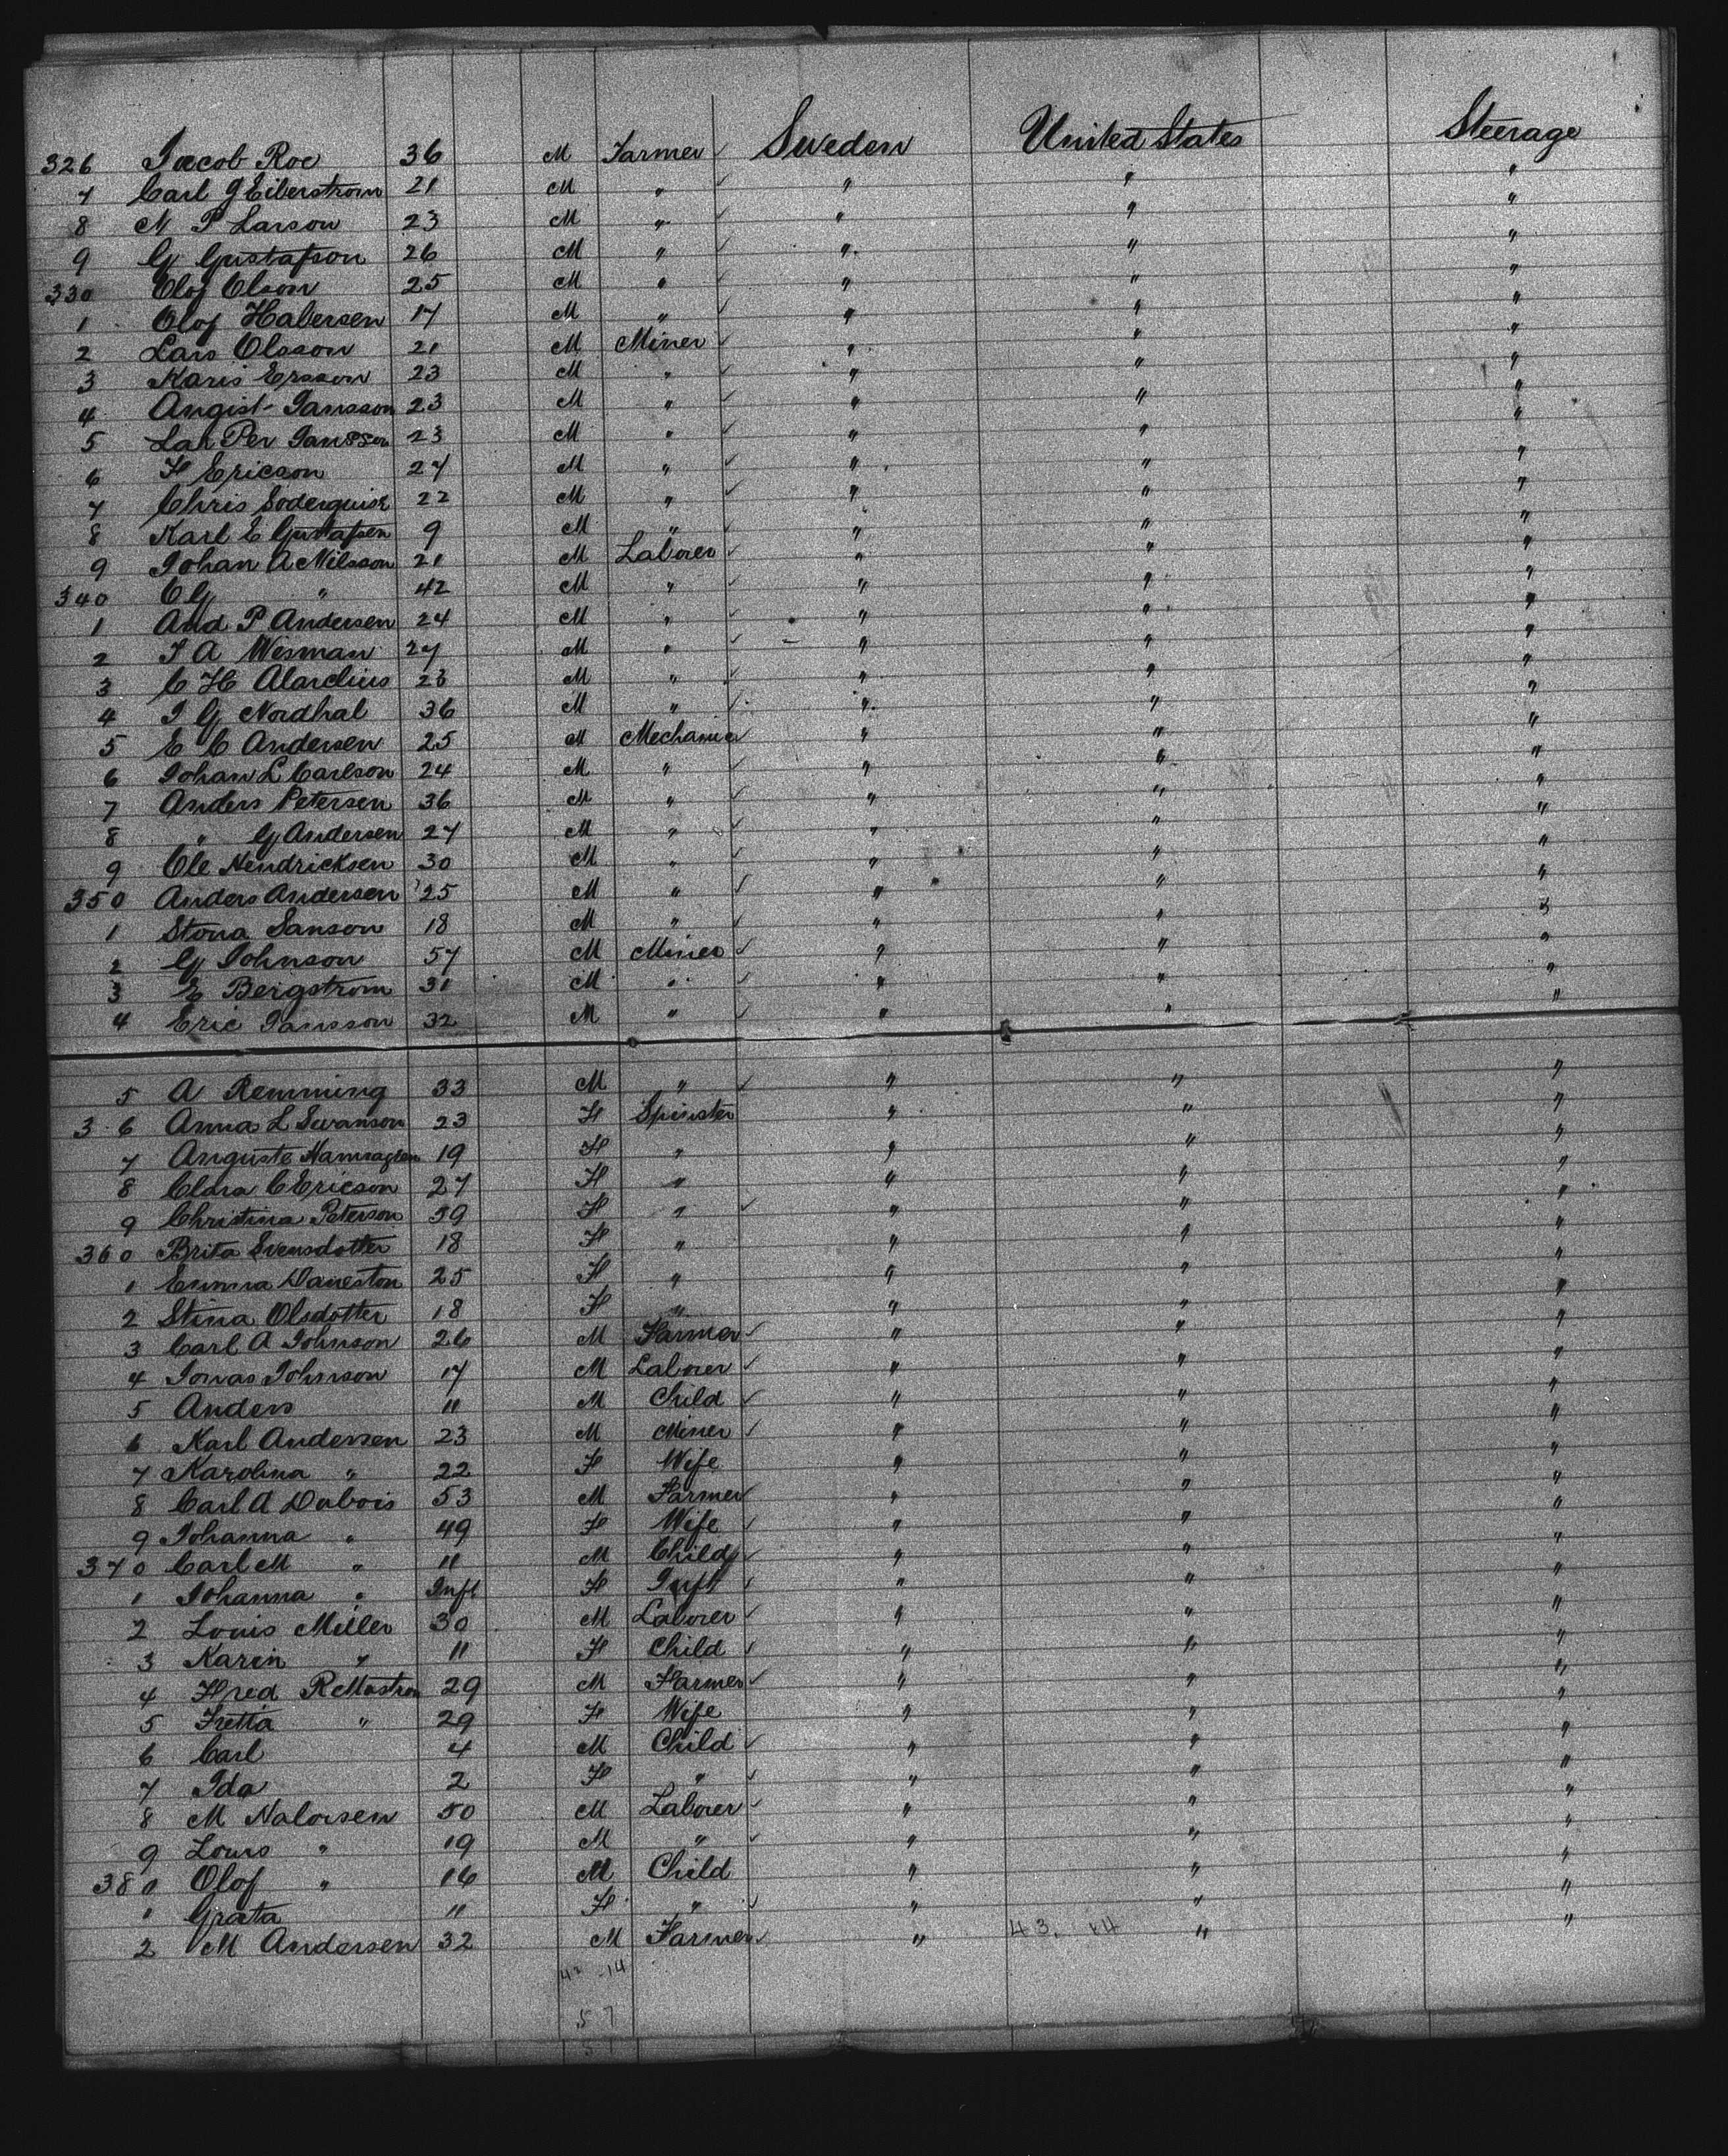 326 Jacob Roe 36 M Farmer ✓ Sweden United States Steerage
7 Carl J Eiberstrom 21 M " ✓ " " "
8 N P Larson 23 M " ✓ " " "
9 G Gustafson 26 M " ✓ " " "
330 Olof Olson 25 M " ✓ " " "
1 Olof Habersen 17 M " ✓ " " "
2 Lars Olsson 21 M Miner ✓ " " "
3 Karis Ersson 23 M " ✓ " " "
4 Angist Jansson 23 M " ✓ " " "
5 Lar Per Jansson 23 M " ✓ " " "
6 F Ericson 27 M " ✓ " " "
7 Chris Soderquist 22 M " ✓ " " "
8 Karl E Gustafsen 9 M " ✓ " " "
9 Johan A Nilsson 21 M Laborer ✓ " " "
340 C G " 42 M " ✓ " " "
1 And P Andersen 24 M " ✓ " " "
2 J A Wesman 27 M " ✓ " " "
3 C H Alardius 23 M " ✓ " " "
4 J G Nordhal 36 M " ✓ " " "
5 E C Andersen 25 M Mechanic " " "
6 Johan L Carlson 24 M " ✓ " " "
7 Anders Petersen 36 M " ✓ " " "
8 " G Andersen 27 M " ✓ " " "
9 Ole Hendricksen 30 M " ✓ " " "
350 Anders Andersen 25 M " ✓ " " "
1 Stona Sanson 18 M " ✓ " " "
2 G Johnson 57 M Miner ✓ " " "
3 E Bergstrom 31 M " ✓ " " "
4 Eric Jansson 32 M " ✓ " " "
5 A Remming 33 M " ✓ " " "
3 6 Anna L Swanson 23 F Spinster " " "
7 Anguste 19 F " " " "
8 Clara C Ericson 27 F " " " "
9 Christina Peterson 59 F " ✓ " " "
360 Brita Svensdotter 18 F " " " "
1 Emma Daneston 25 F " " " "
2 Stina Olsdotter 18 F " " " "
3 Carl A Johnson 26 M Farmer ✓ " " "
4 Jonas Johnson 17 M Laborer ✓ " " "
5 Anders 11 M Child ✓ " " "
6 Karl Andersen 23 M Miner ✓ " " "
7 Karolina " 22 F Wife " " "
8 Carl A Dubois 53 M Farmer ✓ " " "
9 Johanna " 49 F Wife ✓ " " "
370 Carl M " 11 M Child ✓ " " "
1 Johanna " Inft F Inft ✓ " " "
2 Louis Miller 30 M Laborer ✓ " " "
3 Karin " 11 F Child ✓ " " "
4 Fred 29 M Farmer ✓ " " "
5 Fretta " 29 F Wife " " "
6 Carl 4 M Child ✓ " " "
7 Ida 2 F " ✓ " " "
8 M Nalorsen 50 M Laborer ✓ " " "
9 Louis " 19 M " ✓ " " "
380 Olof " 16 M Child " " "
1 Grata 11 F " ✓ " " "
2 M Andersen 32 M Farmer ✓ " 43. 14 " "
42 -14
57
57